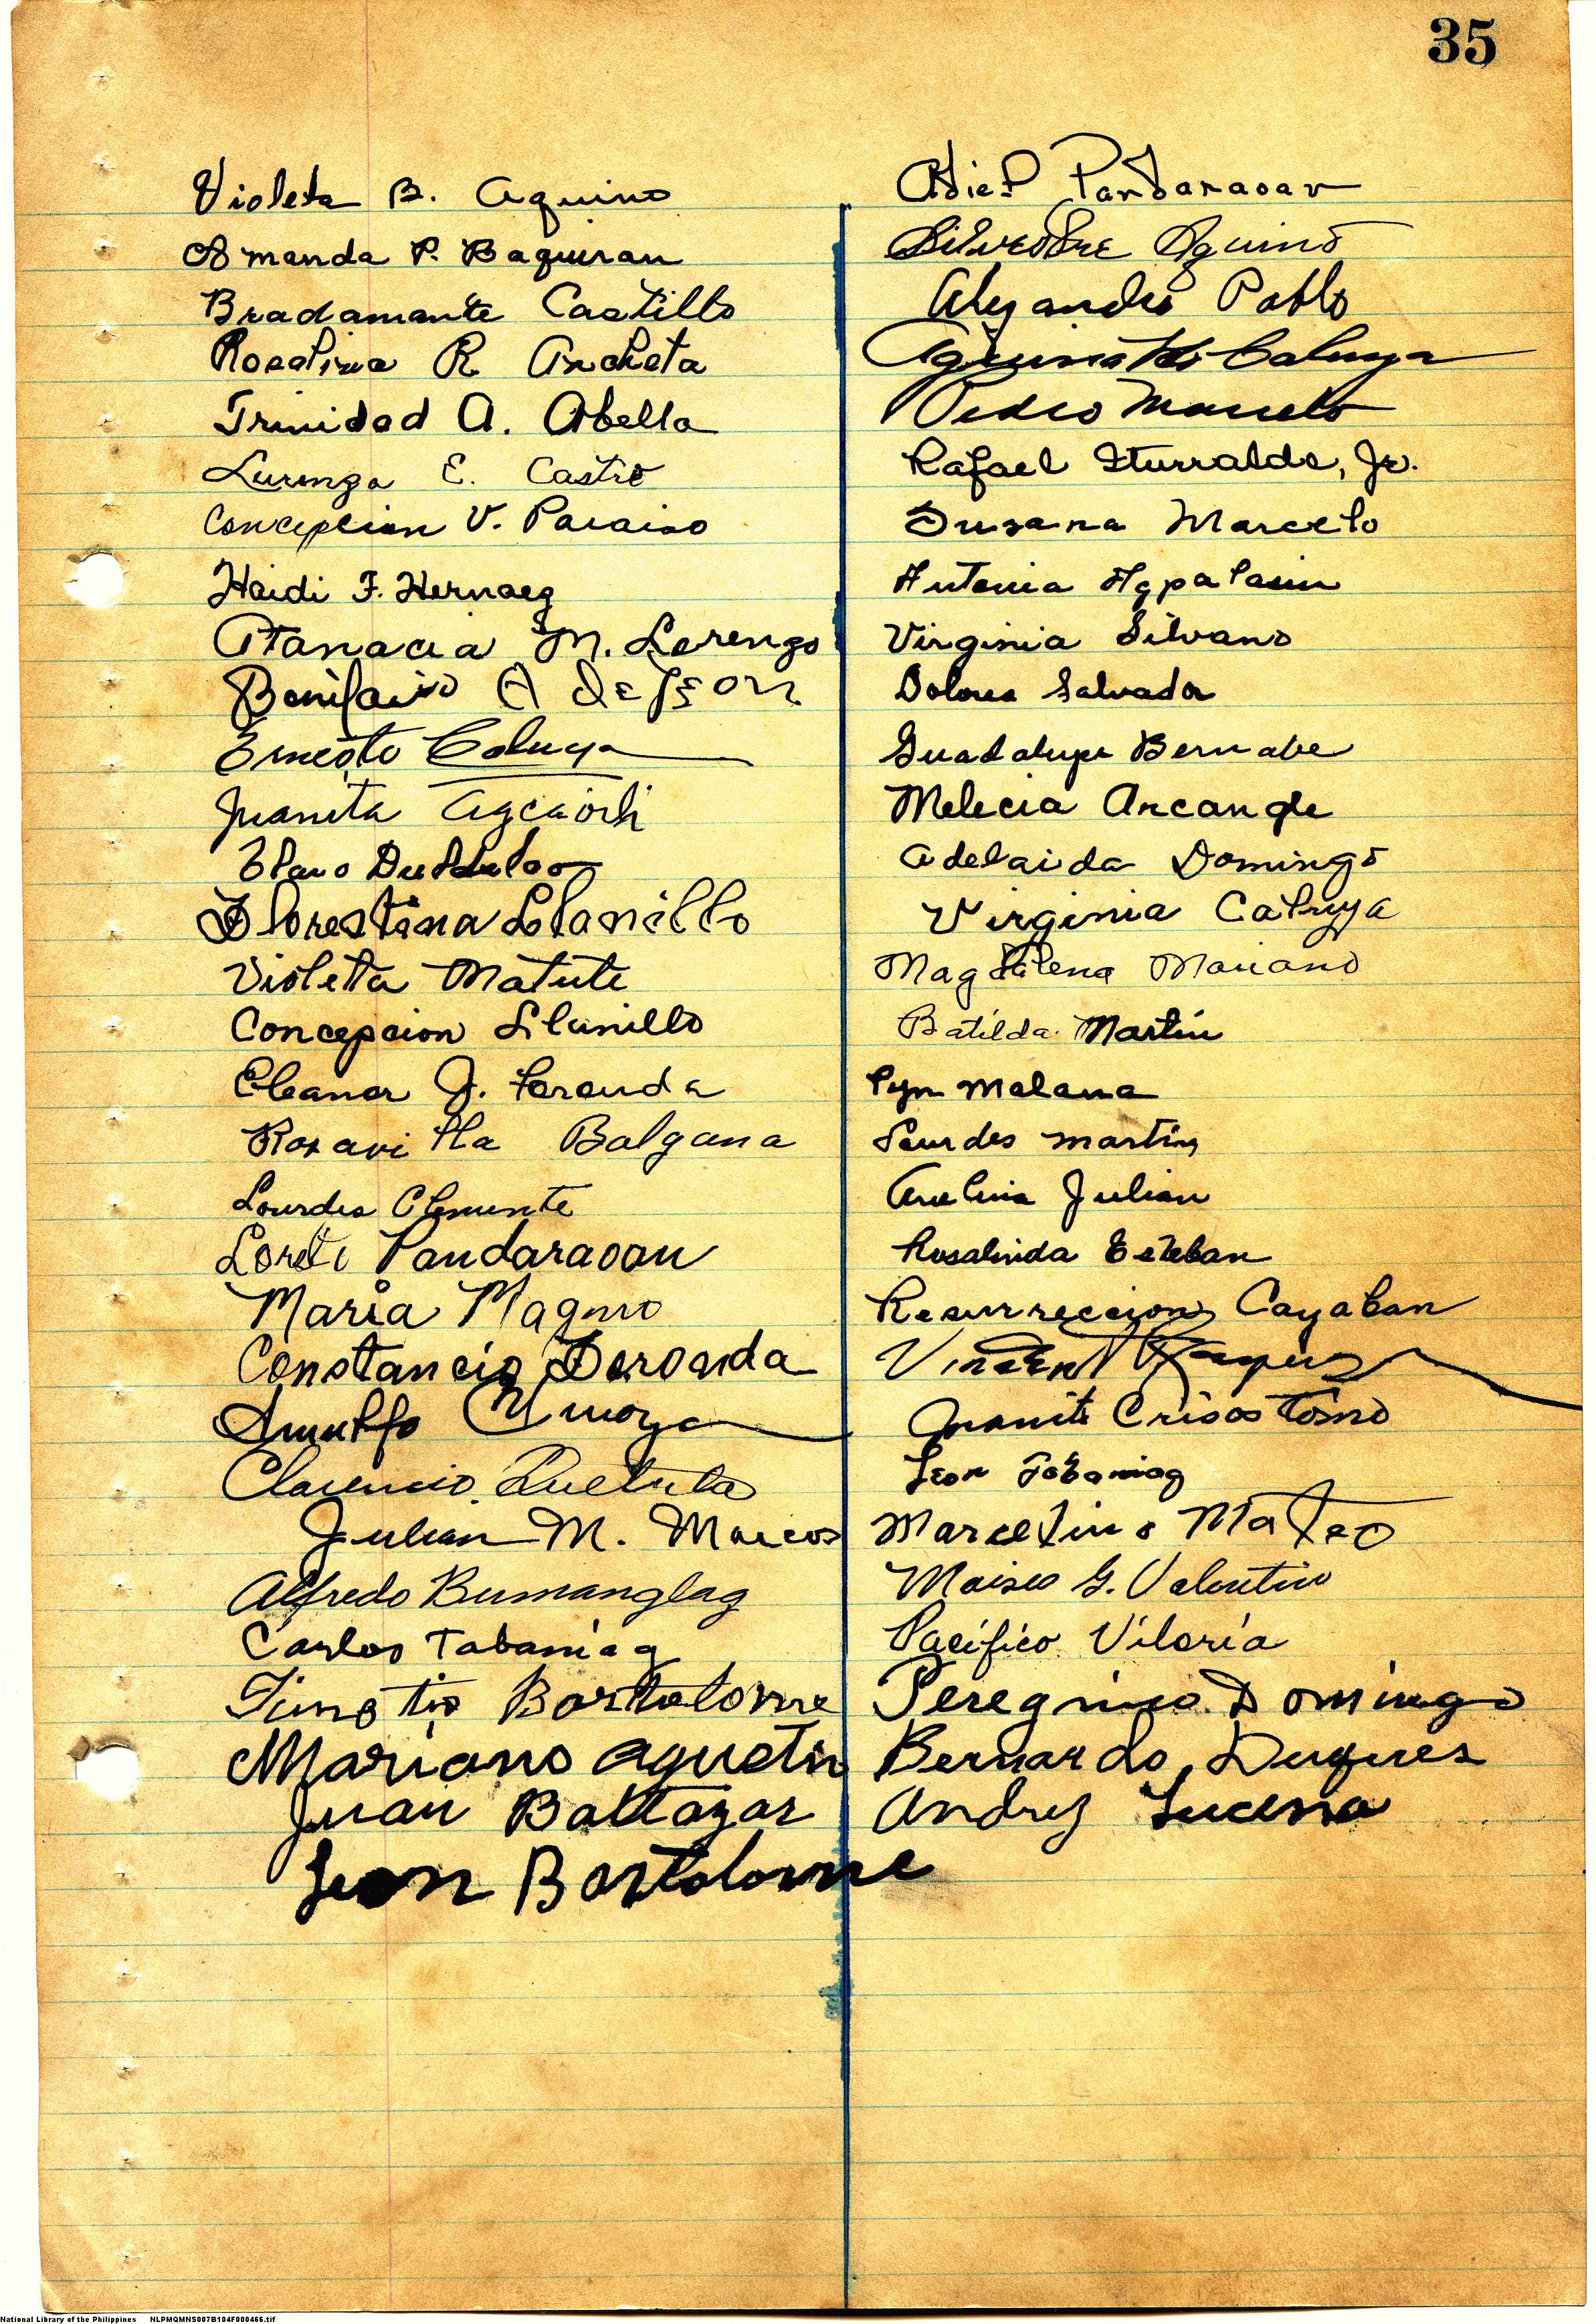 35
Violeta B. Aquino
Amanda P. Baquiran
Bradamante Castillo
Rosalina R Ancheta
Trinidad A. Abella
E. Castro
Concepcion V. Paraiso
Haidi F. Hernaez
Atanacia M. Lorenzo
Bonifacio A de Leon
Ernesto Caluya
Juanita Agcaoili
Florestina Llanillo
Violeta Matute
Concepcion Llanillo
Eleanor J. Foronda
Rosavilla Balgana
Lourdes Clemente
Pandaraoan
Maria Magno
Constancio Foronda
Arnulfo
Julian M. Marcos
Alfredo Bumanglag
Carlos Tabaniag
Bartolome
Mariano Agustin
Juan Baltazar
Leon Bartolome
Adiel Pandaraoan
Silvestre Aquino
Alejandro Pablo
Caluya
Pedro Marcelo
Rafael Iturralde, Jr.
Susana Marcelo
Antonia Agpalasin
Virginia Silvano
Dolores Salvador
Guadalupe Bernabe
Melecia Arcangle
Adelaida Domingo
Virginia Caluya
Magdalena Mariano
Batilda Martin
Lyn Malana
Lourdes Martin
Avelina Julian
Rosalinda Esteban
Resurreccion Cayaban
Vincent
Juanito Crisostomo
Leon Tabaniag
Marcelino Mateo
Moises G. Valentin
Pacifico Viloria
Peregrino Domingo
Bernardo Duques
Andres Lucena
National Library of the Philippines NLPMQMNS007B104F000466.tif